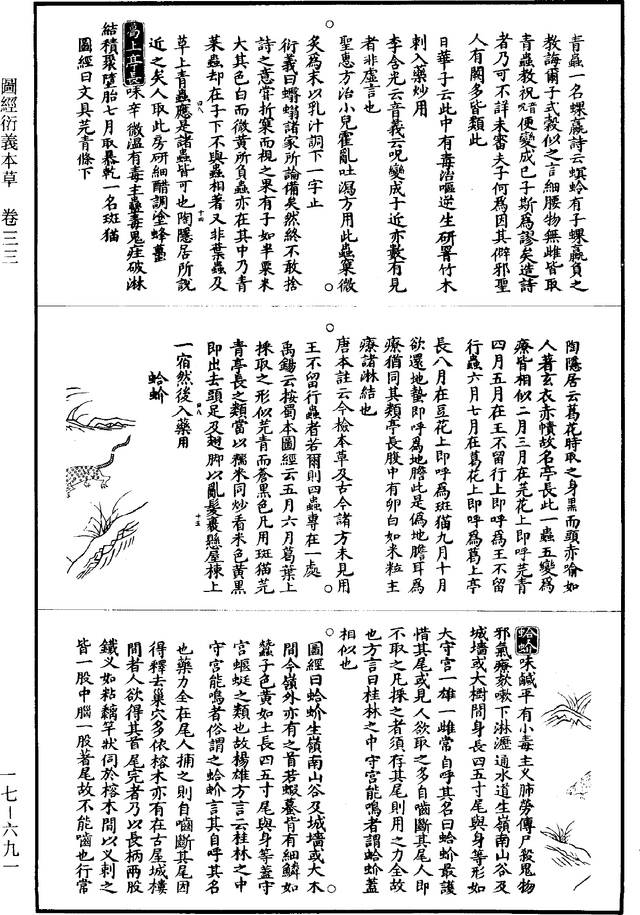 圖經衍義本草　卷三三
一七－六九一
青蟲一名蜾蠃詩云螟蛉有子蜾蠃負之
教誨爾子式穀似之言細腰物無雌皆取
青蟲教祝便變成己子斯為謬矣造詩
者乃可不詳未審夫子何為因其僻邪聖
人有闕多皆類此
日華子云此中有毒治嘔逆生研罯竹木
刺入藥炒用
李含光云音義云呪變成子近亦數有見
者非虛言也
聖惠方治小兒霍亂吐瀉方用此蟲窠微
炙為末以乳汁調下一字止
衍義曰蠮螉諸家所論備矣然終不敢捨
詩之意嘗折窠而視之果有子如半粟米
大其色白而微黃所負蟲亦在其中乃青
菜蟲却在子下不與蟲相著又非葉蟲及
草上青蟲應是諸蟲皆可也陶隱居所說
近之矣人取此房研細醋調塗蜂蠆
葛上亭長味辛微溫有毒主蠱毒鬼疰破淋
結積聚墮胎七月取暴乾一名斑猫
圖經曰文具芫青條下
陶隱居云葛花時取之身黑而頭赤喻如
人著玄衣赤幘故名亭長此一蟲五變為
療皆相似二月三月在芫花上即呼芫青
四月五月在王不留行上即呼為王不留
行蟲六月七月在葛花上即呼為葛上亭
長八月在豆花上即呼為斑猫九月十月
欲還地蟄即呼為地膽此是偽地膽耳為
療猶同其類亭長腹中有卵白如米粒主
療諸淋結也
唐本註云今檢本草及古今諸方未見用
王不留行蟲者若爾則四蟲專在一處
禹錫云按蜀本圖經云五月六月葛葉上
採取之形似芫青而蒼黑色凡用斑猫芫
青亭長之類當以糯米同炒看米色黃黑
即出去頭足及翅脚以亂髮裹懸屋棟上
一宿然後入藥用
蛤蚧
蛤蚧味鹹平有小毒主久肺勞傳尸殺鬼物
邪氣療欬嗽下淋瀝通水道生嶺南山谷及
城墻或大樹間身長四五寸尾與身等形如
大守宮一雄一雌常自呼其名曰蛤蚧最護
惜其尾或見人欲取之多自嚙斷其尾人即
不取之凡採之者須存其尾則用之力全故
也方言曰桂林之中守宮能鳴者謂蛤蚧蓋
相似也
圖經曰蛤蚧生嶺南山谷及城墻或大木
間今嶺外亦有之首若蝦蟇背有細鱗如
蠶子色黃如土長四五寸尾與身等蓋守
宮蝘蜓之類也故楊雄方言云桂林之中
守宮能鳴者俗謂之蛤蚧言其自呼其名
也藥力全在尾人捕之則自嚙斷其尾因
得釋去巢穴多依榕木亦有在古屋城樓
間者人欲得其首尾完者乃以長柄兩股
鐵义如粘黐竿狀伺於榕木間以义刺之
皆一股中腦一股著尾故不能嚙也行常